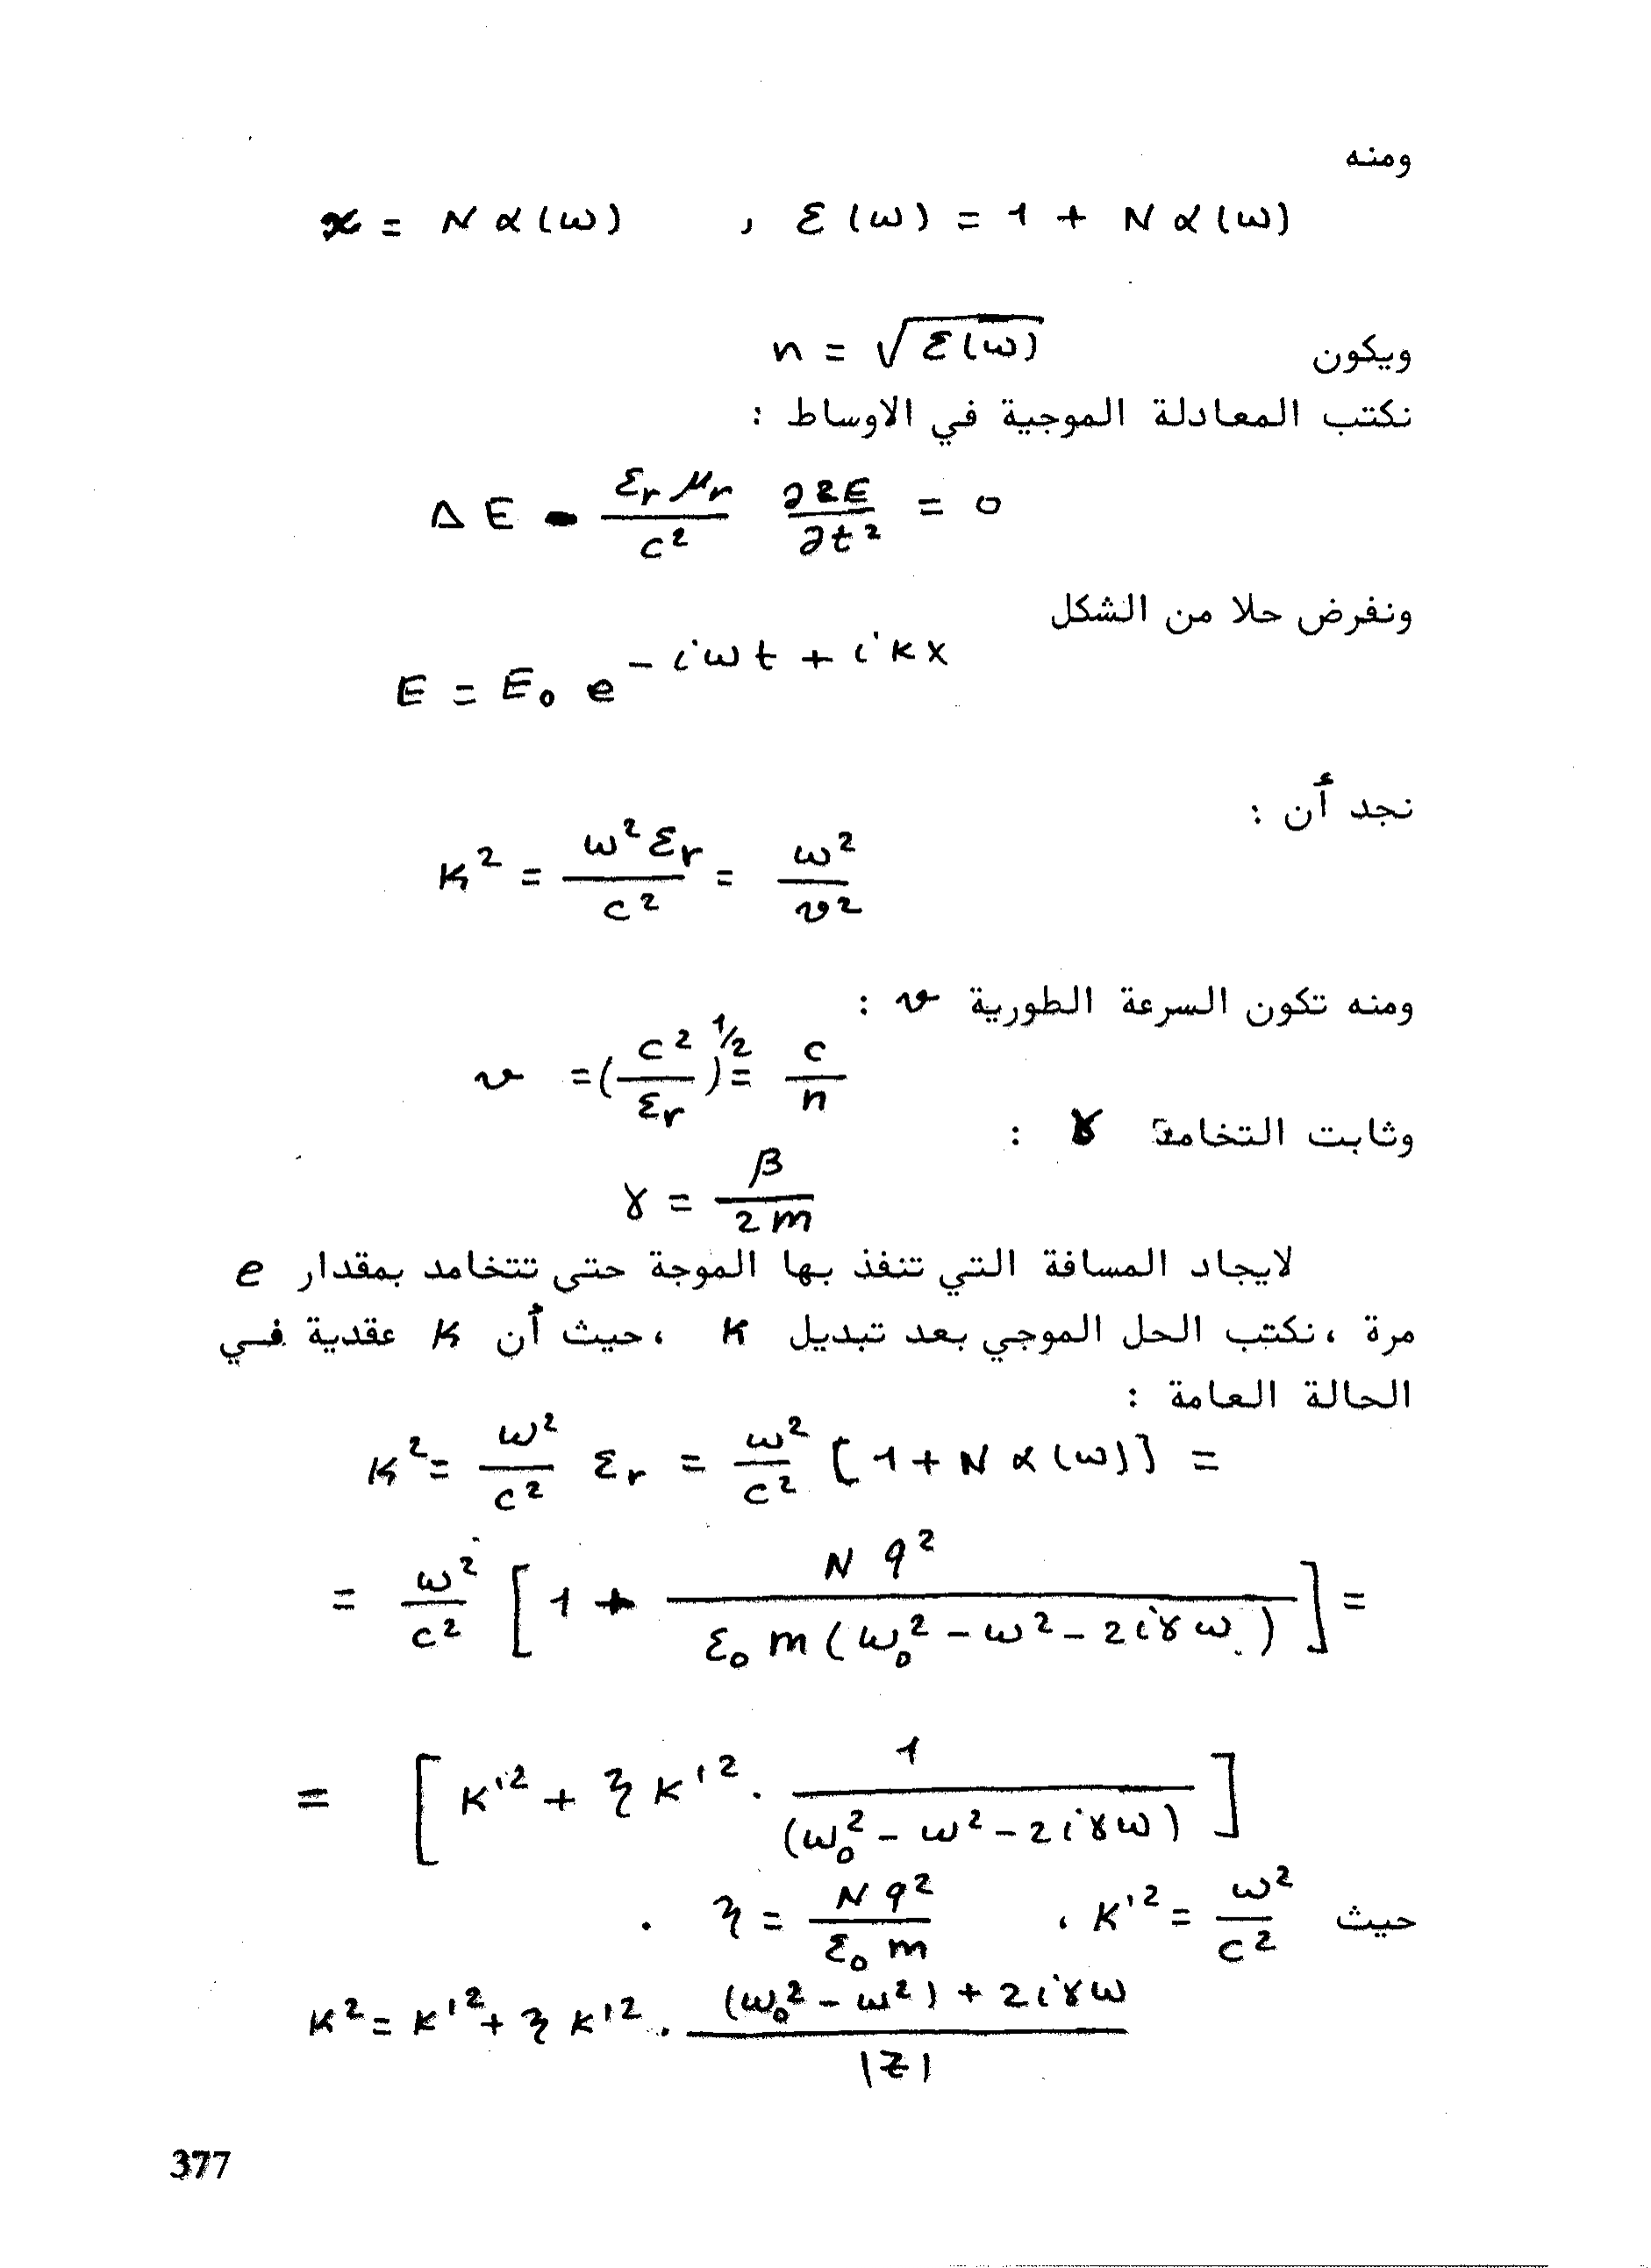 ومنه
x = N α(ω) , ε(ω) = 1 + N α(ω)
ويكون n = √ε(ω)
نكتب المعادلة الموجية في الاوساط :
Δ E - (εr μr / c²) (∂2E / ∂t²) = 0
ونفرض حلا من الشكل
E = E₀ e^(- iωt + ikx)
نجد أن :
K² = ω² εr / c² = ω² / v²
ومنه تكون السرعة الطورية v :
v = (c² / εr)^½ = c / n
وثابت التخامد γ :
γ = β / 2m
لايجاد المسافة التي تنفذ بها الموجة حتى تتخامد بمقدار e
مرة ، نكتب الحل الموجي بعد تبديل K ، حيث أن K عقدية فـي
الحالة العامة :
K² = (ω² / c²) εr = (ω² / c²) [1 + N α(ω)] =
= (ω² / c²) [1 + N q² / (ε₀ m (ω₀² - ω² - 2iγω))] =
= [K'² + ξ K'² . 1 / (ω₀² - ω² - 2iγω)]
حيث K'² = ω² / c² ، ξ = N q² / (ε₀ m) .
K² = K'² + ξ K'² . ((ω₀² - ω²) + 2iγω) / |Z|
377